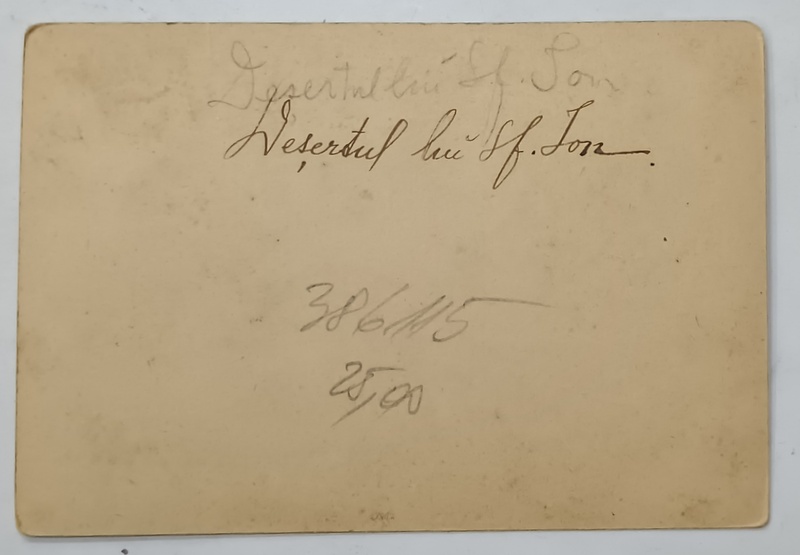 Deșertul lui Sf. Ion
Deșertul lui Sf. Ion.
386115
25,00